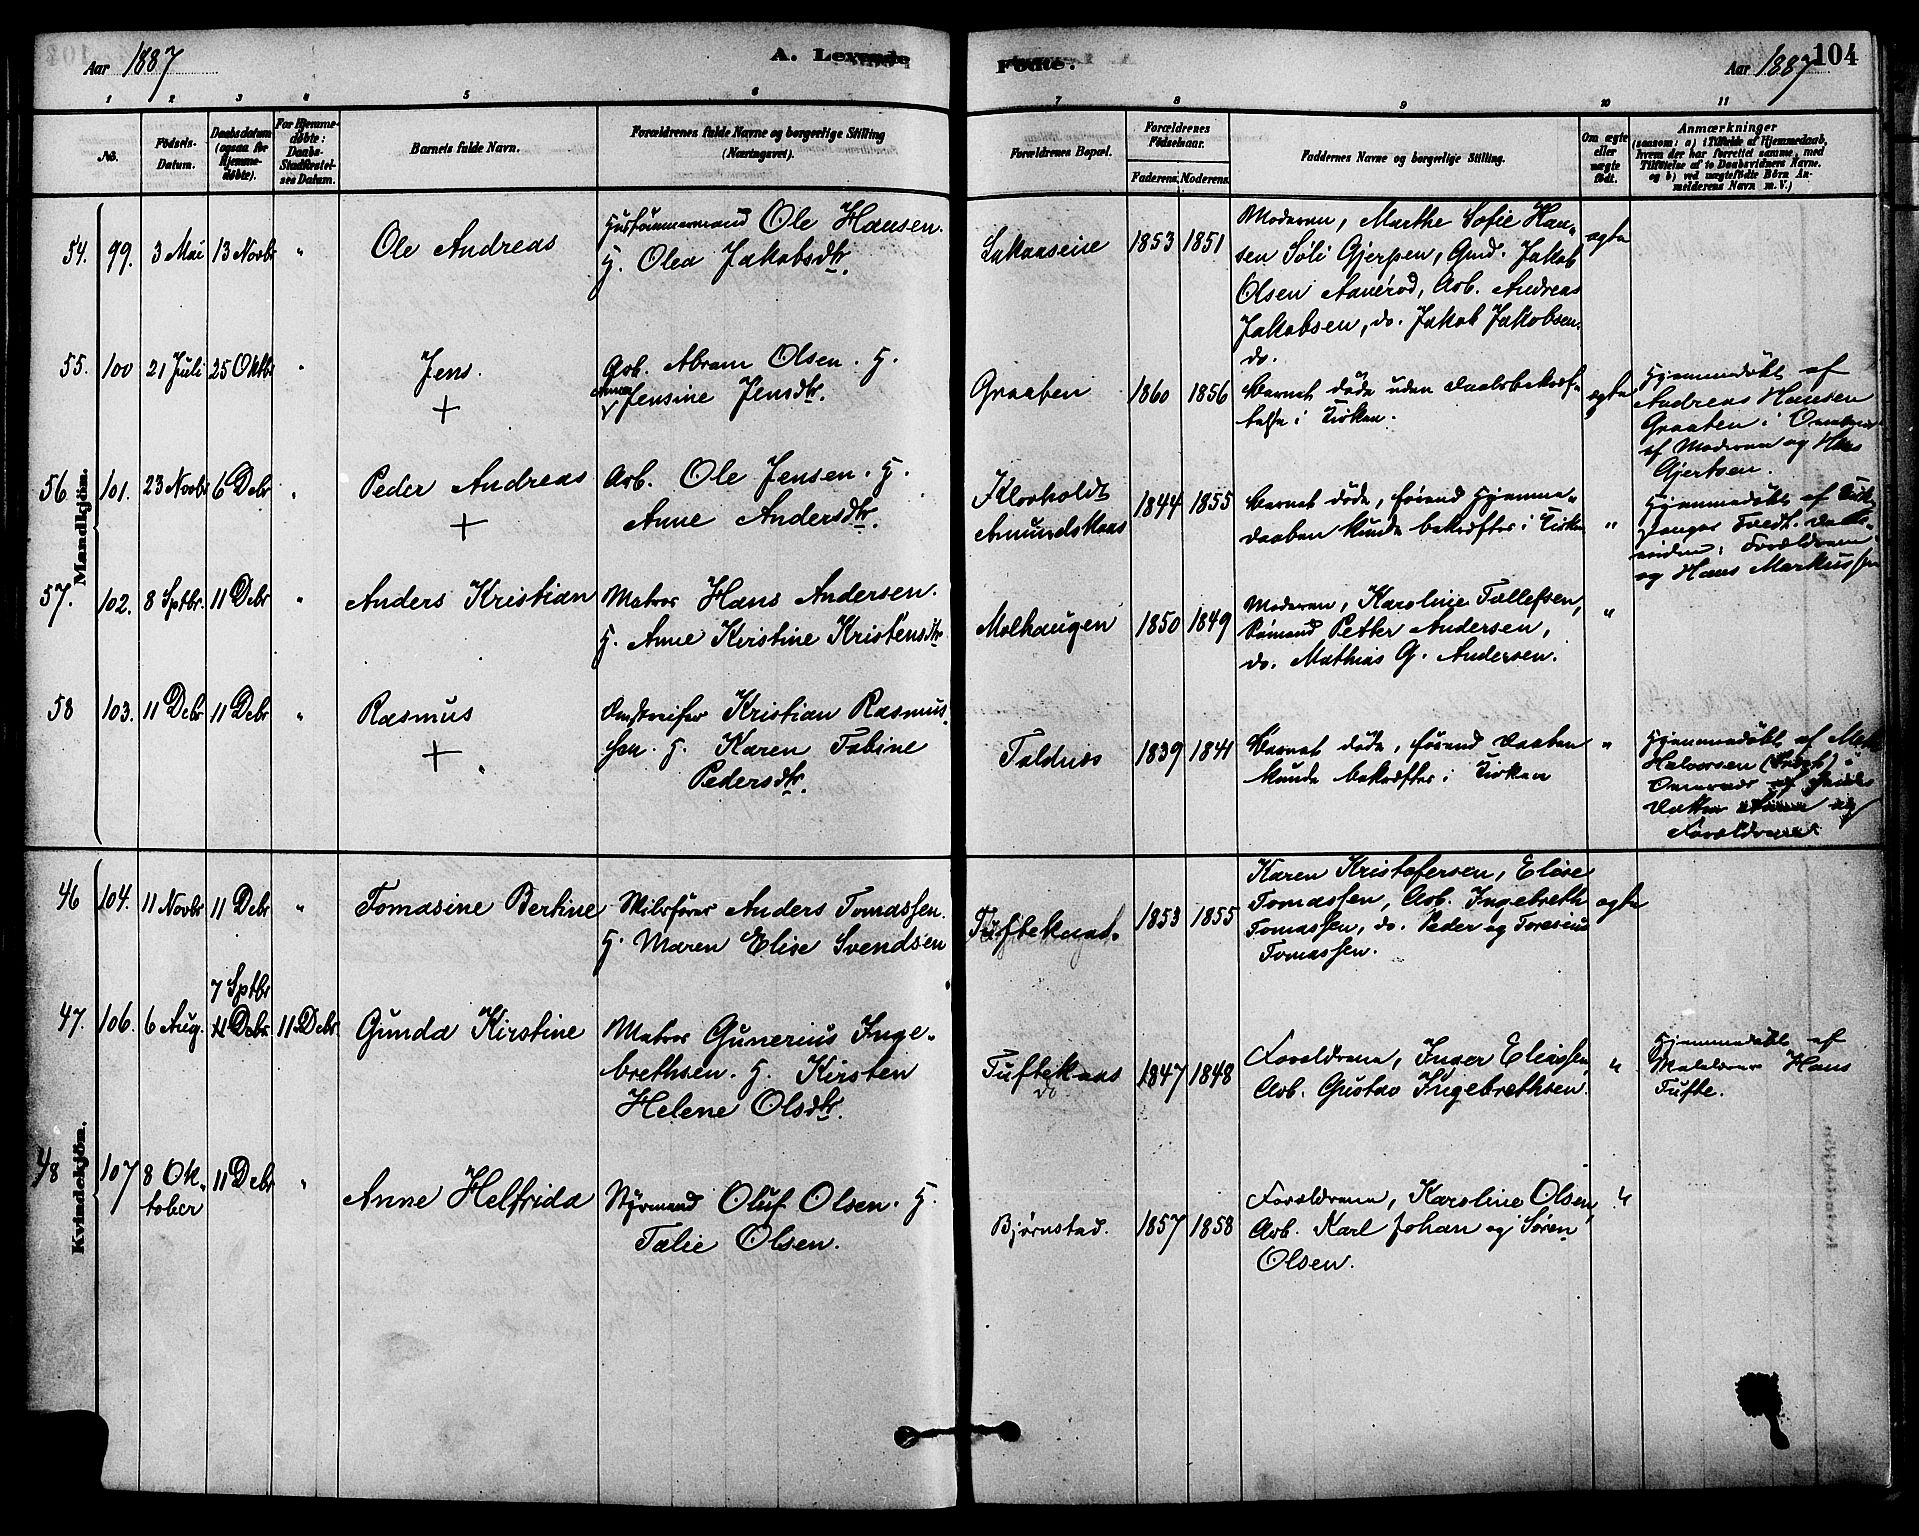 Aar 1887
A. Levende
Fødte.
Aar 1887
104
1 2 3 4 5 6 7 8 9 10 11
No.
Fødsels-
Datum.
Daabsdatum
(ogsaa for
Hjemme-
døbte).
For Hjemme-
døbte:
Daabs-
Stadfæstel-
ses Datum.
Barnets fulde Navn.
Forældrenes fulde Navne og borgerlige Stilling
(Næringsvei).
Forældrenes Bopæl.
Forældrenes
Fødselsaar.
Faderens. Moderens.
Faddernes Navne og borgerlige Stilling.
Om ægte
eller
uægte
født.
Anmærkninger
(saasom: a) i Tilfælde af Hjemmedaab,
hvem der har forrettet samme, med
Tilføielse af to Daabsvidners Navne.
og b) ved uægtefødte Børn An-
melderens Navn m. V.)
Mandkjøn.
54. 99. 3 Mai 13 Novbr "
Ole Andreas
Hustømmermand Ole Hansen.
H. Olea Jakobsdtr.
1853 1851
Moderen, Marthe Sofie Han-
sen Søli Gjerpen, Gmd. Jakob
Olsen Aanerød, Arb. Andreas
Jakobsen, do. Jakob Jakobsen.
do.
ægte
55. 100 21 Juli 25 Oktbr "
Jens.
+
Arb. Abram Olsen. H.
Jensine Jensdtr.
Graaten
1860 1856
Barnet døde uden Daabsbekræf-
telse i Kirken.
ægte
Hjemmedøbt af
Andreas Hansen
Graaten i Overvær
af Moderen og Hans
Gjertsen.
56 101. 23 Novbr 6 Debr "
Peder Andreas
+
Arb. Ole Jensen. H.
Anne Andersdtr.
Klovholdt
Amundskaas
1844 1855
Barnet døde, førend Hjemme-
daaben kunde bekræftes i Kirken
"
Hjemmedøbt af Kirke-
sanger Tvedt.
Forældrene
og Hans Markussen
57. 102. 8 Sptbr. 11 Debr "
Anders Kristian
Matros Hans Andersen.
H. Anne Kirstine Kristensdtr
Molhaugen
1850 1849
Moderen, Karoline Tellefsen,
Sømand Petter Andersen,
do. Mathias G. Andersen.
"
58 103. 11 Debr 11 Debr "
Rasmus
+
Kristian Rasmus-
sen. H. Karen Tobine
Pedersdtr.
Foldnes
1839 1841
Barnet døde, førend Daaben
kunde bekræftes i Kirken
"
Hjemmedøbt af
Halvorsen
Overvær af
Datter og
Forældrene.
Kvindekjøn.
46 104. 11 Novbr 11 Debr "
Tomasine Bertine
Anders Tomassen.
H. Maren Elise Svendsen
1853 1855
Karen Kristofersen, Elise
Tomassen, Arb. Ingebreth
Tomassen, do. Peder og Toresius
Tomassen.
ægte
7 Sptbr
47. 106. 6 Aug. 11 Debr 11. Debr.
Gunda Kirstine
Matros Gunerius Inge-
brethsen. H. Kirsten
Helene Olsdtr.
Tuftekaas
do
1847 1848
Forældrene, Inger Eliassen,
Arb. Gustav Ingebrethsen.
"
Hjemmedøbt af
Hans
Tufte.
48 107 8 Ok-
tober
11 Debr "
Anne Helfrida
Styrmand Oluf Olsen. H.
Talie Olsen.
Bjørnstad.
1857 1858
Forældrene, Karoline Olsen,
Arb. Karl Johan og Søren
Olsen.
"